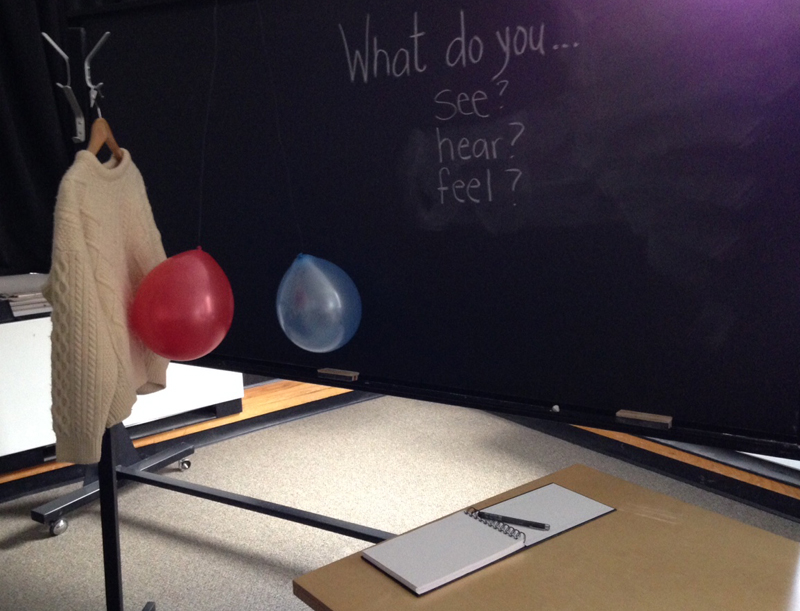 What do you...
see?
hear?
feel?